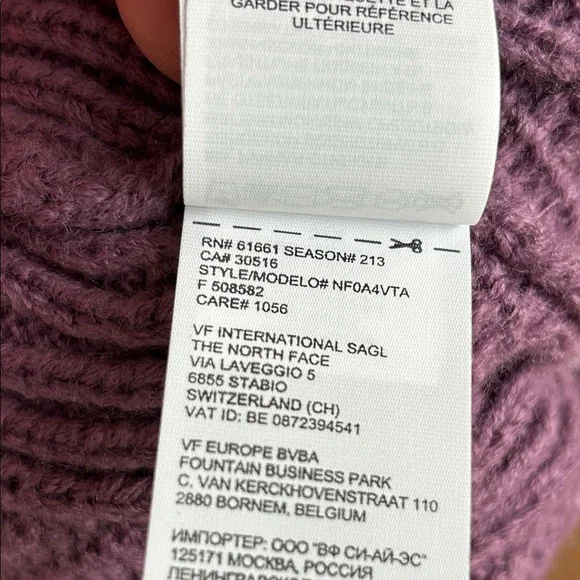 GARDER POUR RÉFÉRENCE
ULTÉRIEURE
RN# 61661 SEASON# 213
CA# 30516
STYLE/MODELO# NF0A4VTA
F 508582
CARE# 1056
VF INTERNATIONAL SAGL
THE NORTH FACE
VIA LAVEGGIO 5
6855 STABIO
SWITZERLAND (CH)
VAT ID: BE 0872394541
VF EUROPE BVBA
FOUNTAIN BUSINESS PARK
C. VAN KERCKHOVENSTRAAT 110
2880 BORNEM, BELGIUM
ИМПОРТЕР: ООО "ВФ СИ-АЙ-ЭС"
125171 МОСКВА, РОССИЯ